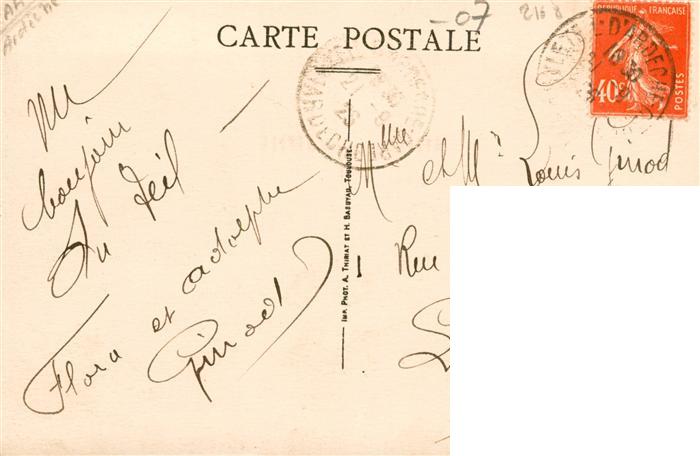 CARTE POSTALE
-07
RÉPUBLIQUE FRANÇAISE
40c
POSTES
D'ARDECHE
Un
bonjour
du Teil
Flora et Adolphe
Ginod
Mme et Mr Louis Ginod
Rue
IMP. PHOT. A. THIRIAT ET H. BASUYAU, TOULOUSE